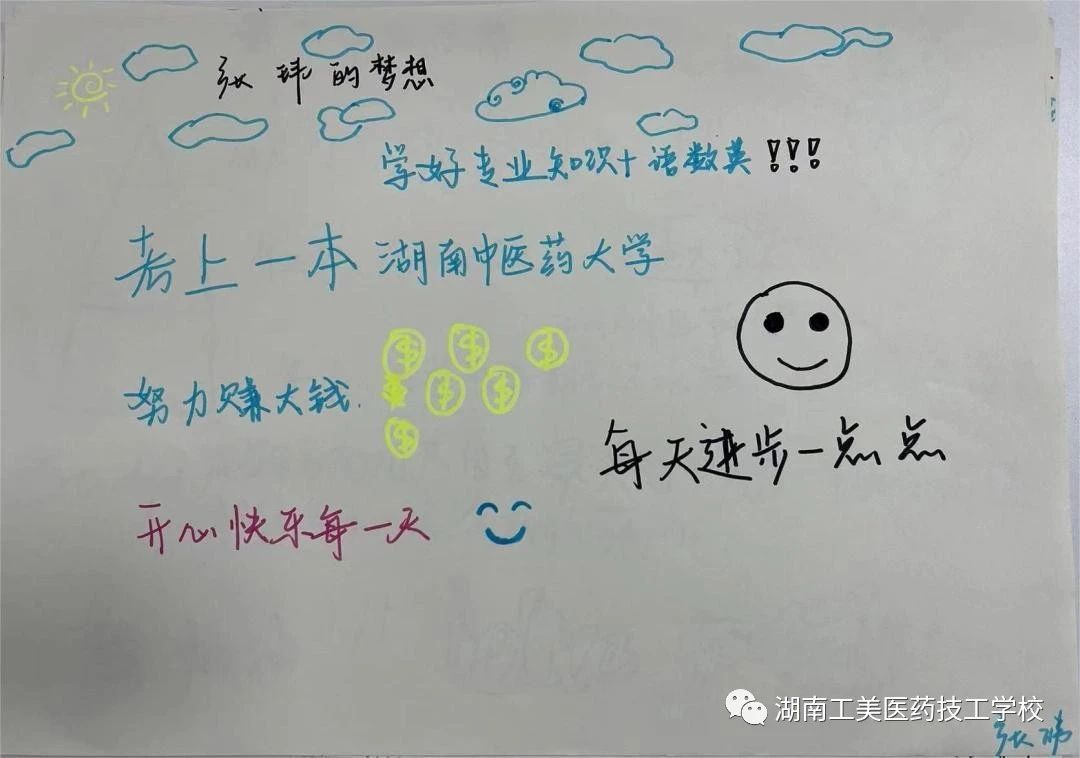 张玮的梦想
学好专业知识+语数英!!!
考上一本湖南中医药大学
努力赚大钱.
$ $ $
$ $
$
每天进步一点点
开心快乐每一天
湖南工美医药技工学校
张玮